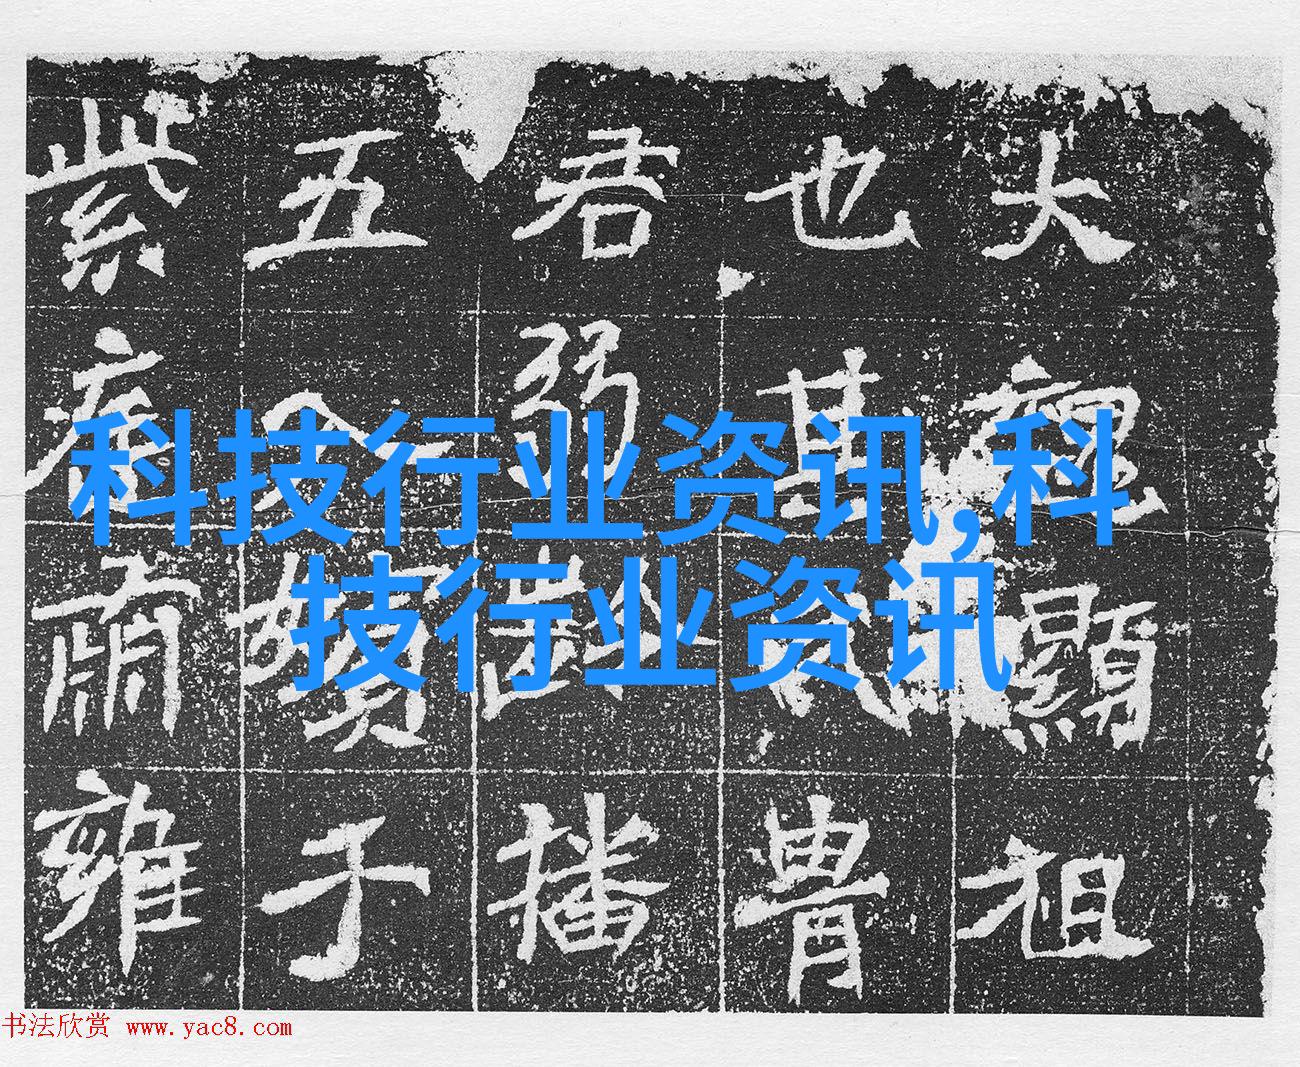 大魏顯祖
也其冑
君弱播
五嬪于
紫肅雍
科技行业资讯,科
技行业资讯
书法欣赏 www.yac8.com